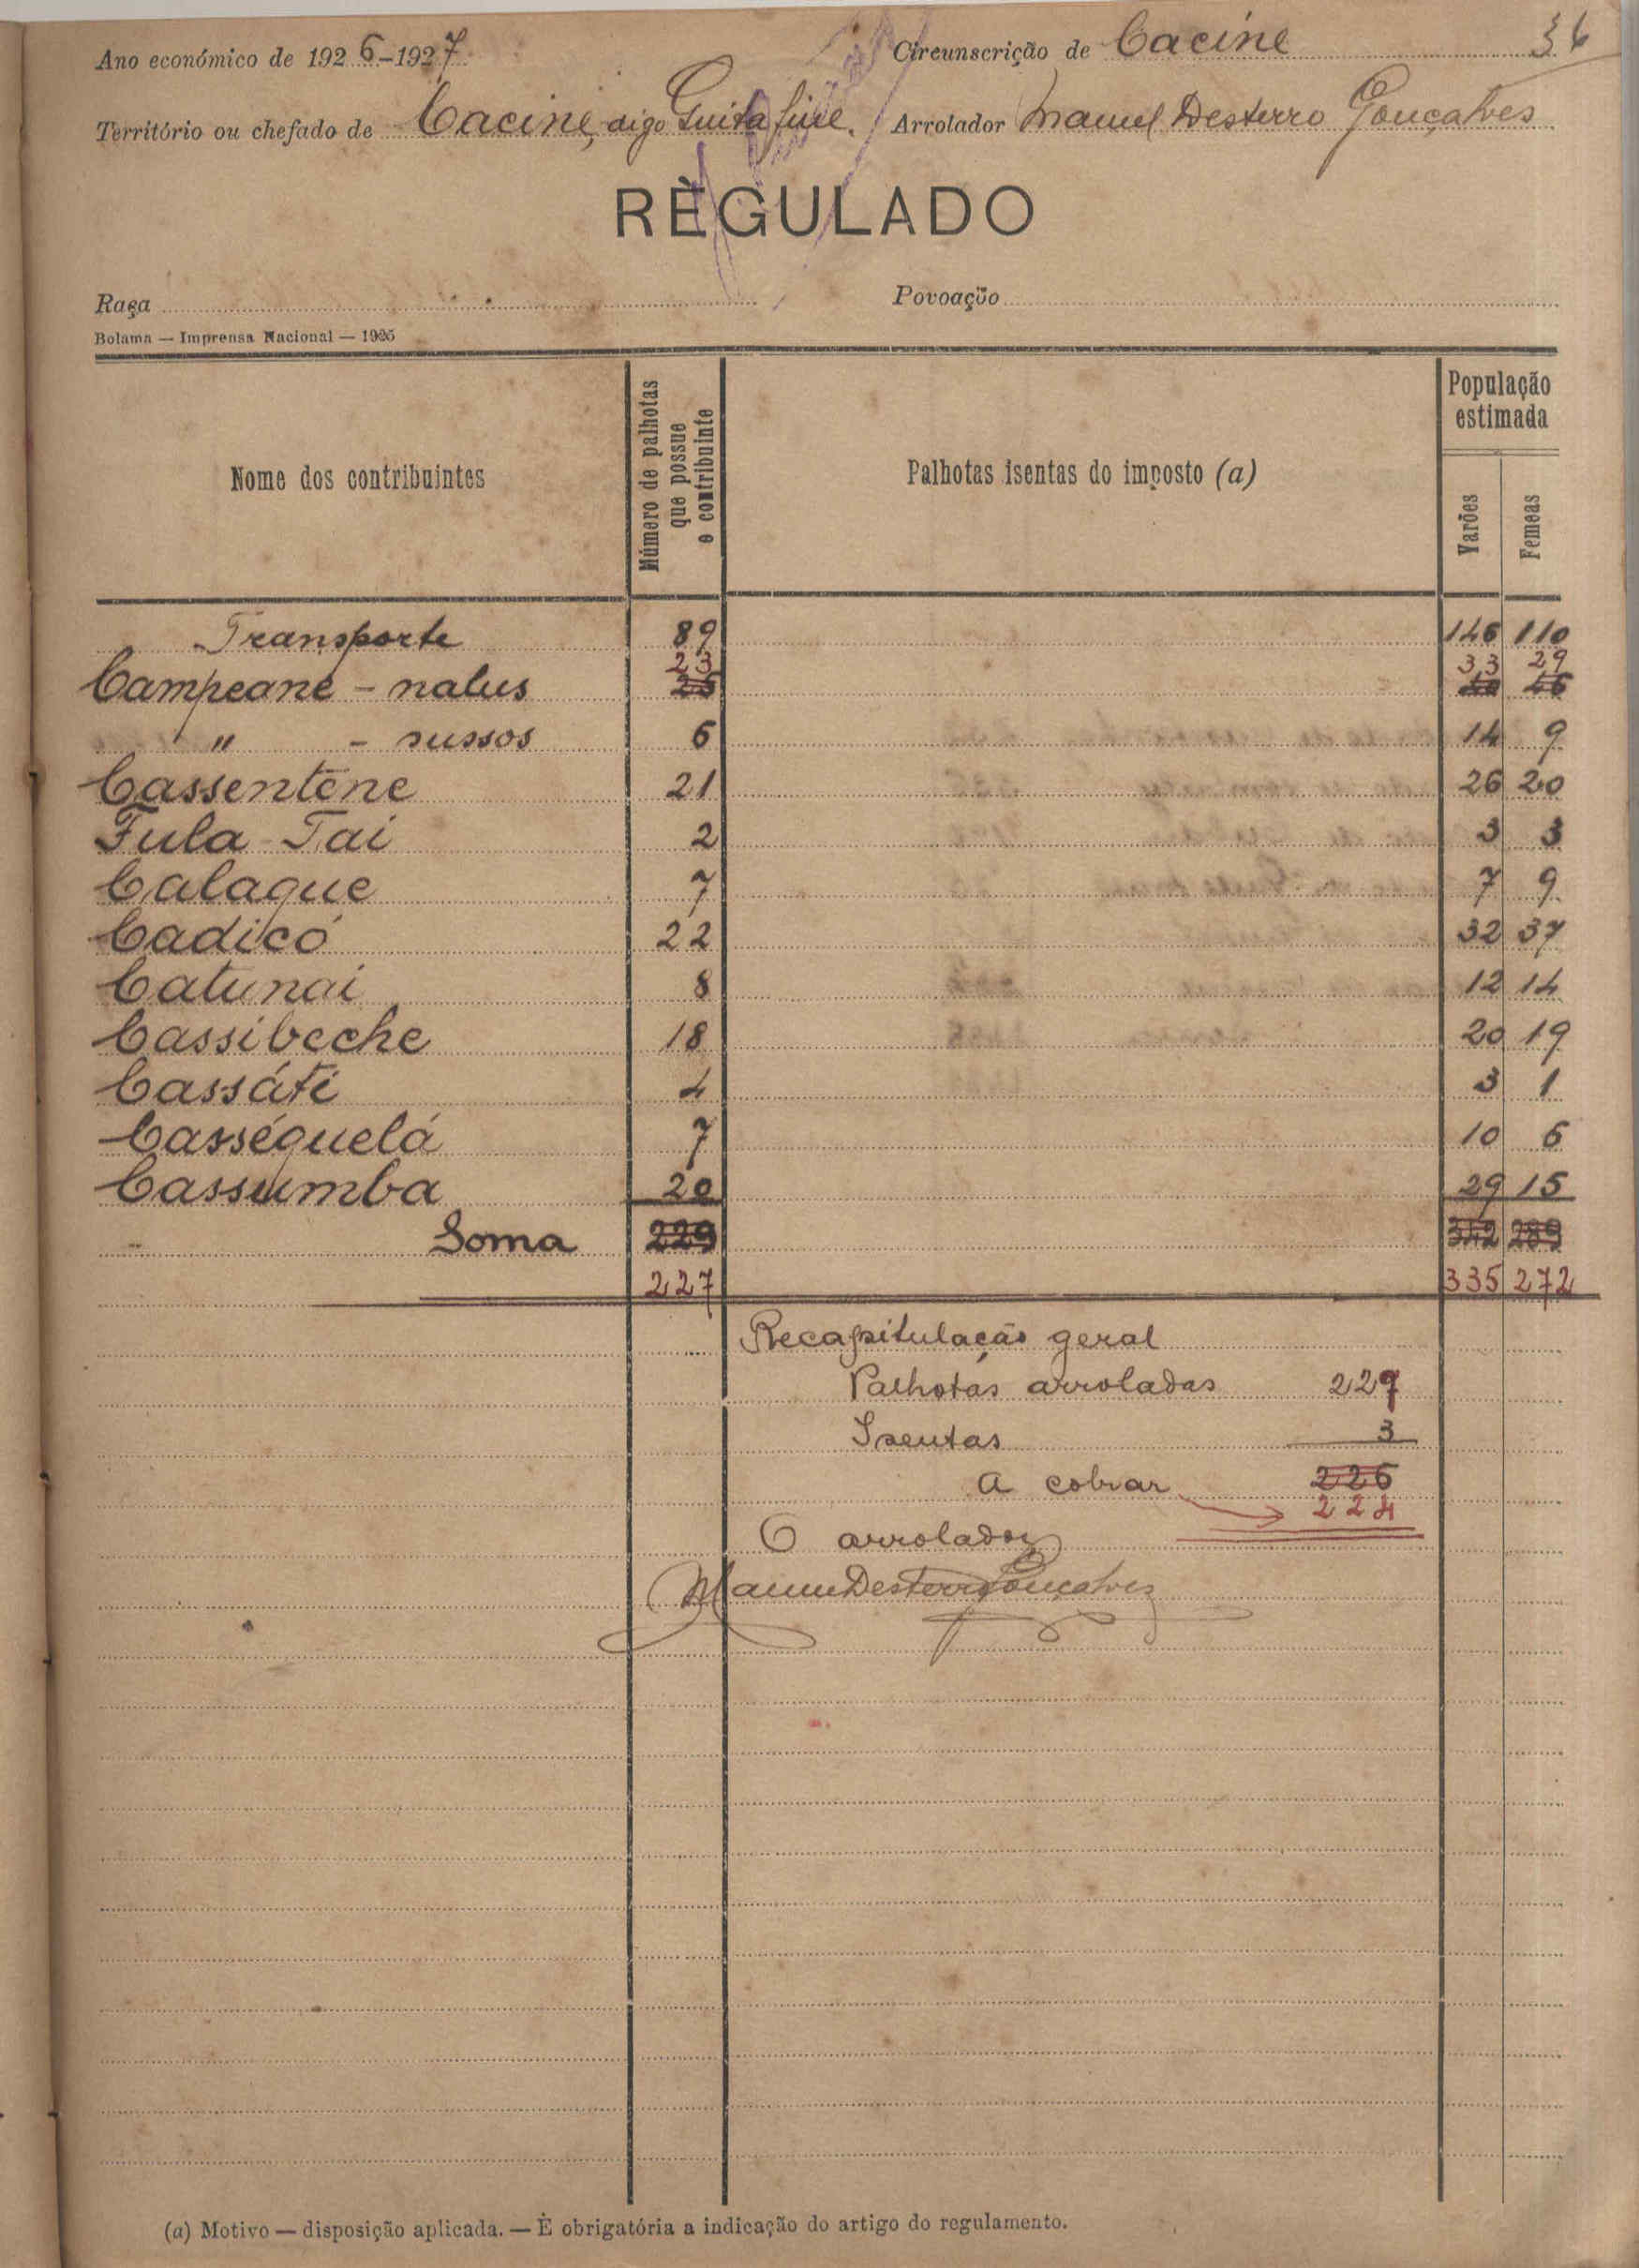 Ano económico de 1926-1927 Circunscrição de Cacine 36
Território ou chefado de Cacine, digo Guitafine. Arrolador Manuel Desterro Gonçalves
RÈGULADO
Raça Povoação
Bolama — Imprensa Nacional — 1925
Nome dos contribuintes Número de palhotas que possue o contribuinte Palhotas isentas do imposto (a) População estimada
Varões Femeas
Transporte 89 146 110
23 33 29
Campeane - nalus 25 40 46
" - sussos 6 14 9
Cassentène 21 26 20
Fula Tai 2 3 3
Calaque 7 7 9
Cadicó 22 32 37
Catunai 8 12 14
Cassibeche 18 20 19
Cassáti 4 3 1
Casséquelá 7 10 6
Cassumba 20 29 15
Soma 229 342 289
227 335 272
Recapitulação geral
Palhotas arroladas 227
Isentas 3
A cobrar 226
224
O arrolador
Manuel Desterro Gonçalves
(a) Motivo — disposição aplicada. — È obrigatória a indicação do artigo do regulamento.